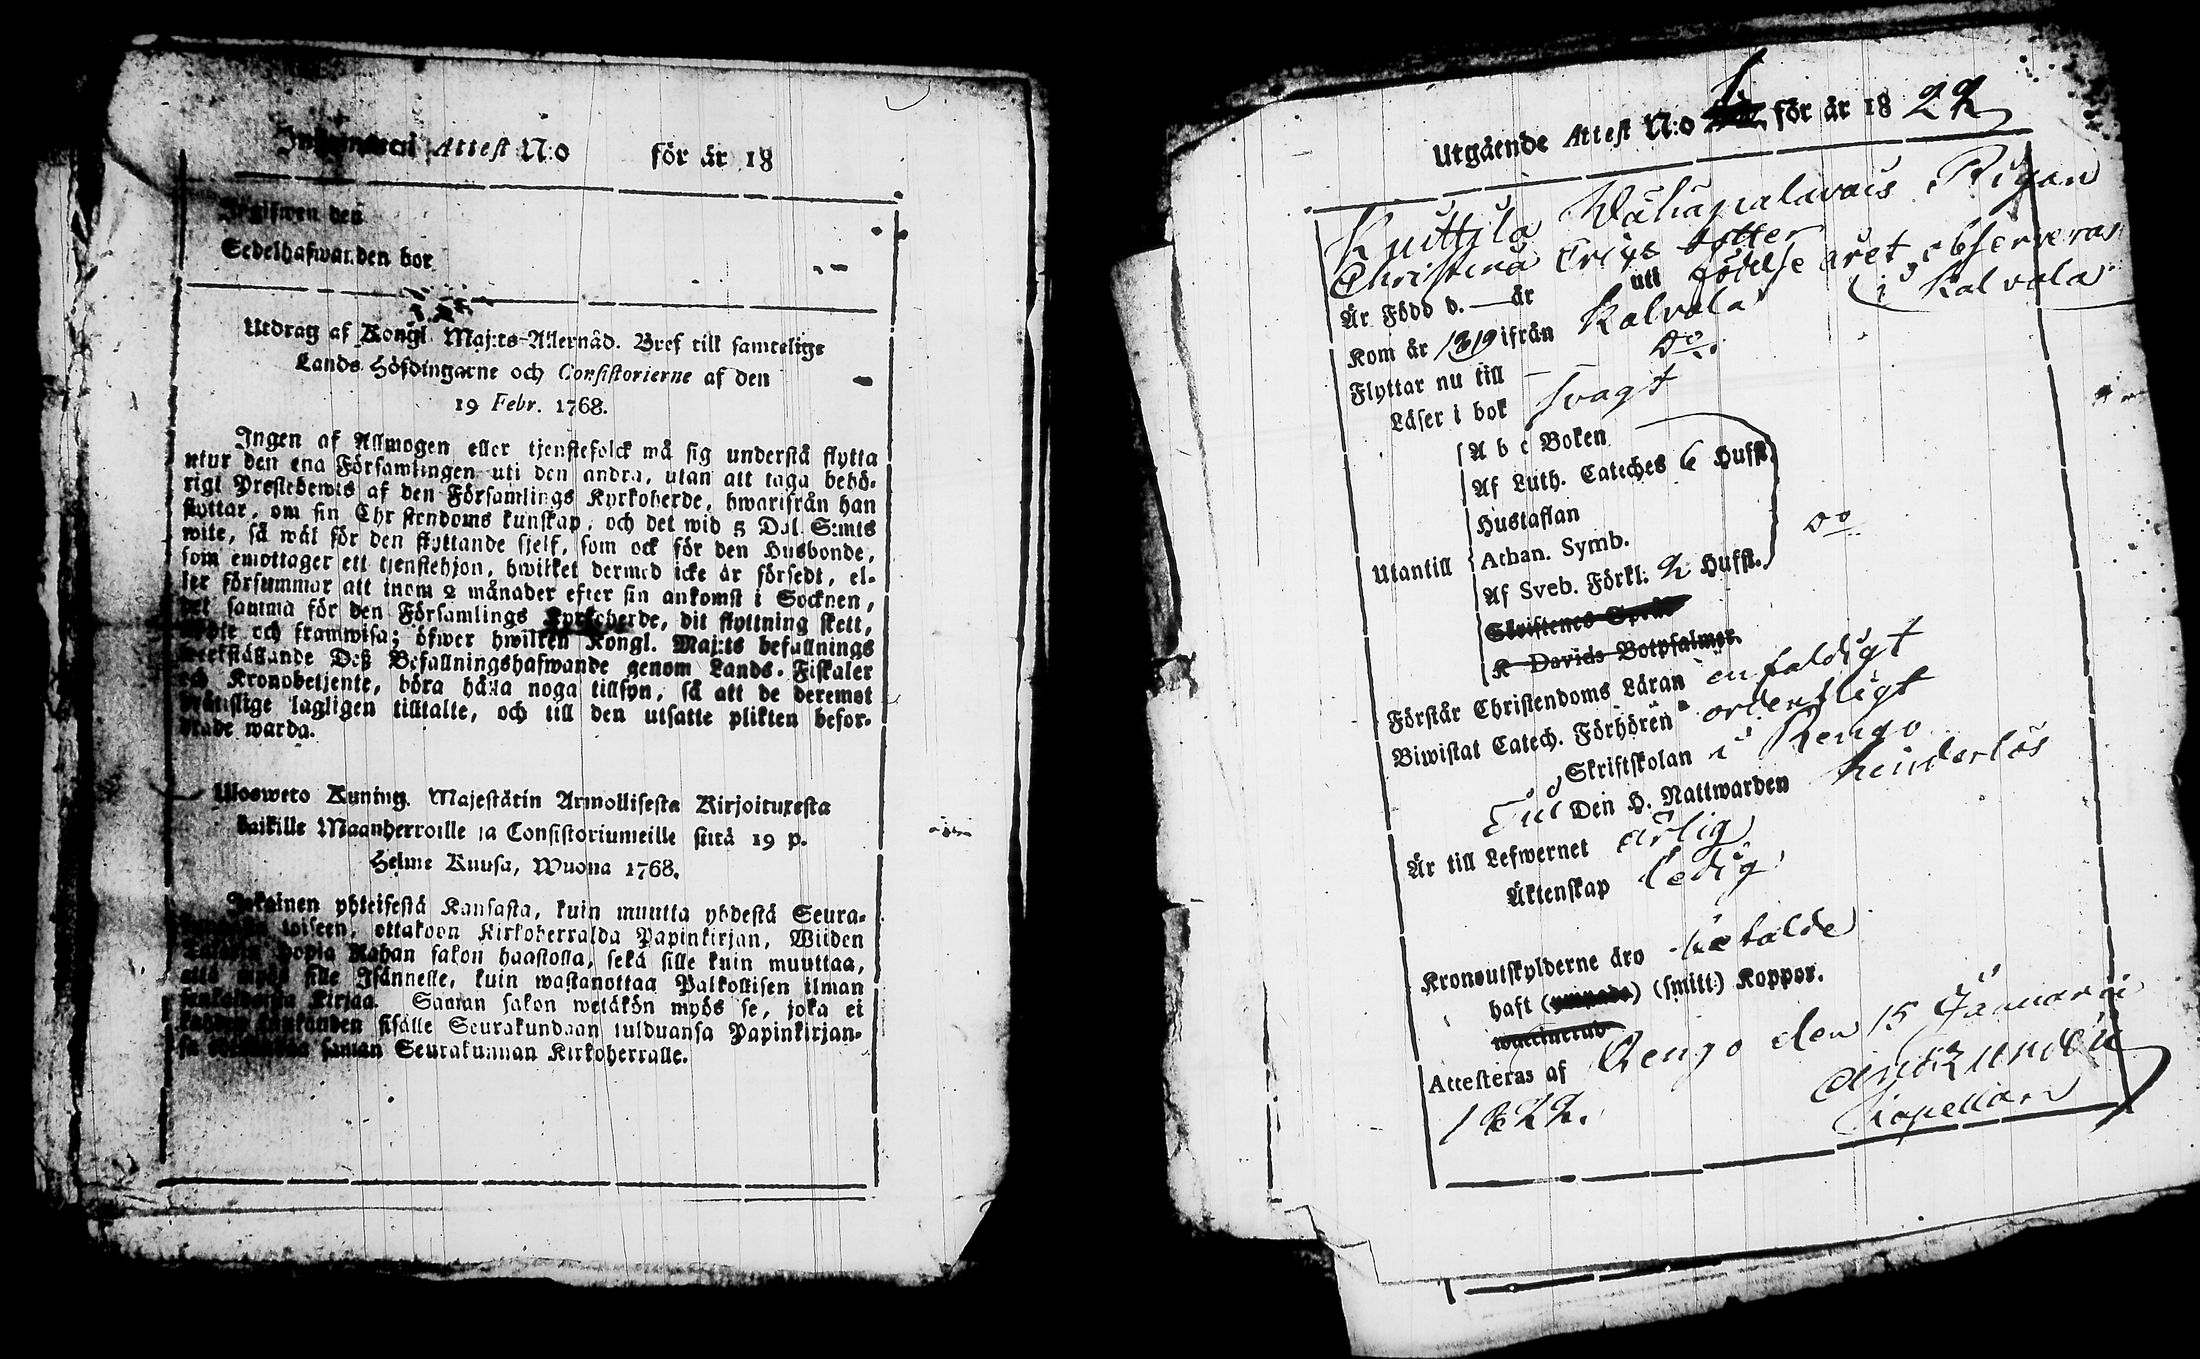 Inkommen Attest N:o för år 18
Ingifwen den
Sedelhafwanden bor
Utdrag af Kongl. Maj:ts Allernåd. Bref till samtelige
Lands Höfdingarne och Consistorierne af den
19 Febr. 1768.
Ingen af Allmogen eller tjenstefolck må sig understå flytta
utur den ena Församlingen uti den andra, utan att taga behö-
rigt Prestebewis af den Församlings Kyrkoherde, hwarifrån han
flyttar, om sin Christendoms kunskap, och det wid 5 Dal. S:mts
wite, så wäl för den flyttande sjelf, som ock för den Husbonde,
som emottager ett tjenstehjon, hwilket dermed icke är försedt, el-
ler försummar att inom 2 månader efter sin ankomst i Socknen,
det samma för den Församlings Kyrkoherde, dit flyttning skett,
och framwisa; öfwer hwilken Kongl. Maj:ts befallnings
werkställande Deß Befallningshafwande genom Lands-Fiskaler
och Kronobetjente, böra hålla noga tillsyn, så att de deremot
brottslige lagligen tilltalte, och till den utsatte plikten befor-
drade warda.
Ulosweto Kuning. Majestätin Armollisesta Kirjoituxesta
kaikille Maanherroille ja Consistoriumeille siitä 19 p.
Helme Kuusa, Wuona 1768.
Jokainen yhteisestä Kansasta, kuin muutta yhdestä Seura-
toiseen, ottakoon Kirkoherralda Papinkirjan, Wiiden
hopia Rahan sakon haastolla, sekä sille kuin muuttaa,
että myös sille Isännelle, kuin wastanottaa Palkollisen ilman
Kirjaa. Saman sakon wetäkön myös se, joka ei
sisälle Seurakundaan tulduansa Papinkirjan-
sa saman Seurakunnan Kirkoherralle.
Utgående Attest N:o för år 18 22
Knuttila Wähäpalawais Pigan
Christina Erics dotter
Är Född d. — år utt födelse året observeras
Kom år 1819 ifrån Kalvola i Kalvola
Flyttar nu till — Do
Läser i bok svagt
Utantill
A b c Boken
Af Luth. Cateches 6 Hufst.
Hustaflan
Athan. Symb. Do
Af Sveb. Förkl. 2 Hufst.
Skriftenes
K Davids Botpsalmer.
Förstår Christendoms Läran enfaldigt
Biwistat Catech. Förhören ordentligt
Skriftskolan i Rengo
Till Den H. Nattwarden hinderlös
Är till Lefwernet ärlig
Äktenskap ledig
Kronoutskylderne äro betalde
haft (smitt:) Koppor.
Attesteras af Rengo den 15 Januarii
1822.
Kapellan